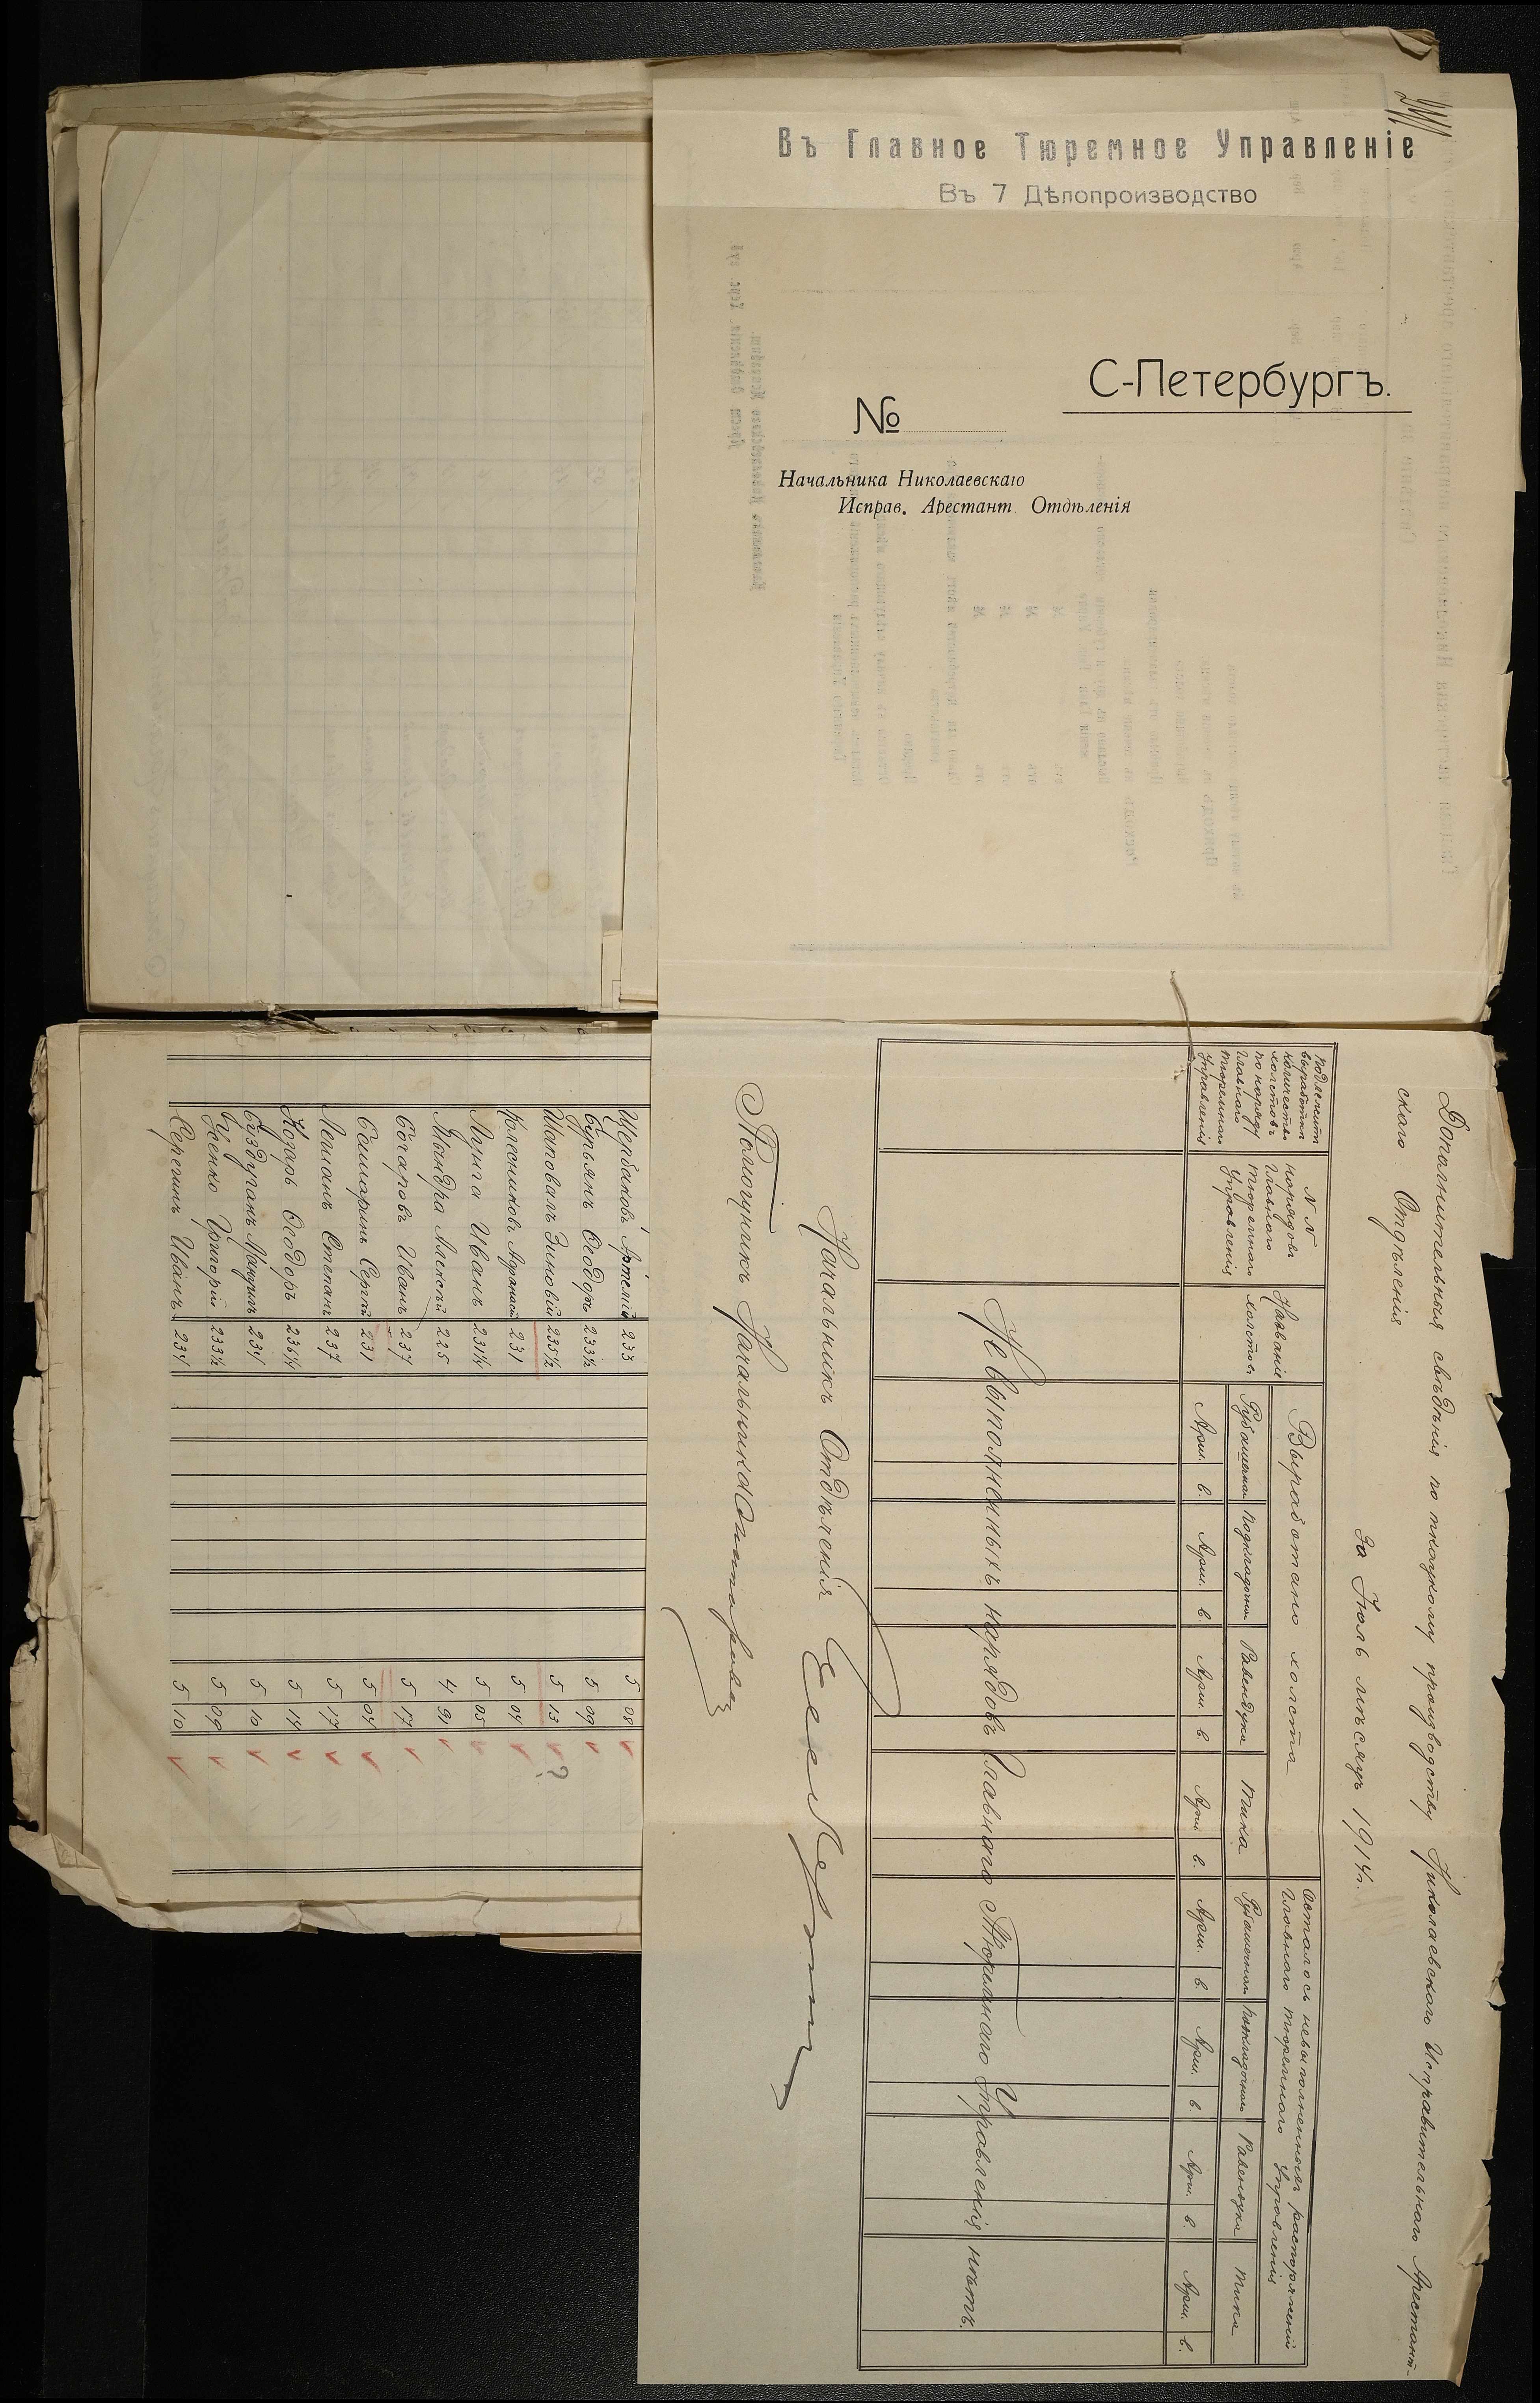 Въ Главное Тюремное Управленіе
Въ 7 Дѣлопроизводство
С-Петербургъ.
№
Начальника Николаевскаго
Исправ. Арестант. Отдѣленія
Дополнительныя свѣдѣнія по ткацкому производству Николаевскаго Исправительнаго Арестант-
скаго Отдѣленія
за Іюль мѣсяцъ 1914г.
Подлежитъ выработкѣ количество холстовъ по наряду Главнаго Тюремнаго Управленія
N N нарядовъ Главнаго Тюремнаго Управленія
Названіе холстовъ
Выработано холста
Осталось невыполненныхъ распоряженій Главнаго Тюремнаго Управленія
Рубашечнаго Подкладочнаго Равендука Тика Рубашечнаго Подкладочнаго Равендука Тика
Арш. в. Арш. в. Арш. в. Арш. в. Арш. в. Арш. в. Арш. в. Арш. в.
Невыполненныхъ нарядовъ Главнаго Тюремнаго Управленія нѣтъ.
Начальникъ Отдѣленія
Помощникъ Начальника
Щербаковъ Артемій 233 5 08
Бурьянъ Ѳеодоръ 233½ 5 09
Шаповалъ Зиновій 235½ 5 13 ?
Колесниковъ Афанасій 231 5 04
Лунга Иванъ 231¼ 5 05
Мындра Алексѣй 225 4 91
Бочаровъ Иванъ 237 5 17
Башмаринъ Сергѣй 231 5 04
Лешанъ Степанъ 237 5 17
Козарь Ѳеодоръ 235¼ 5 14
Буздуганъ 234 5 10
Усенко Григорій 233½ 5 09
Серегинъ Иванъ 234 5 10